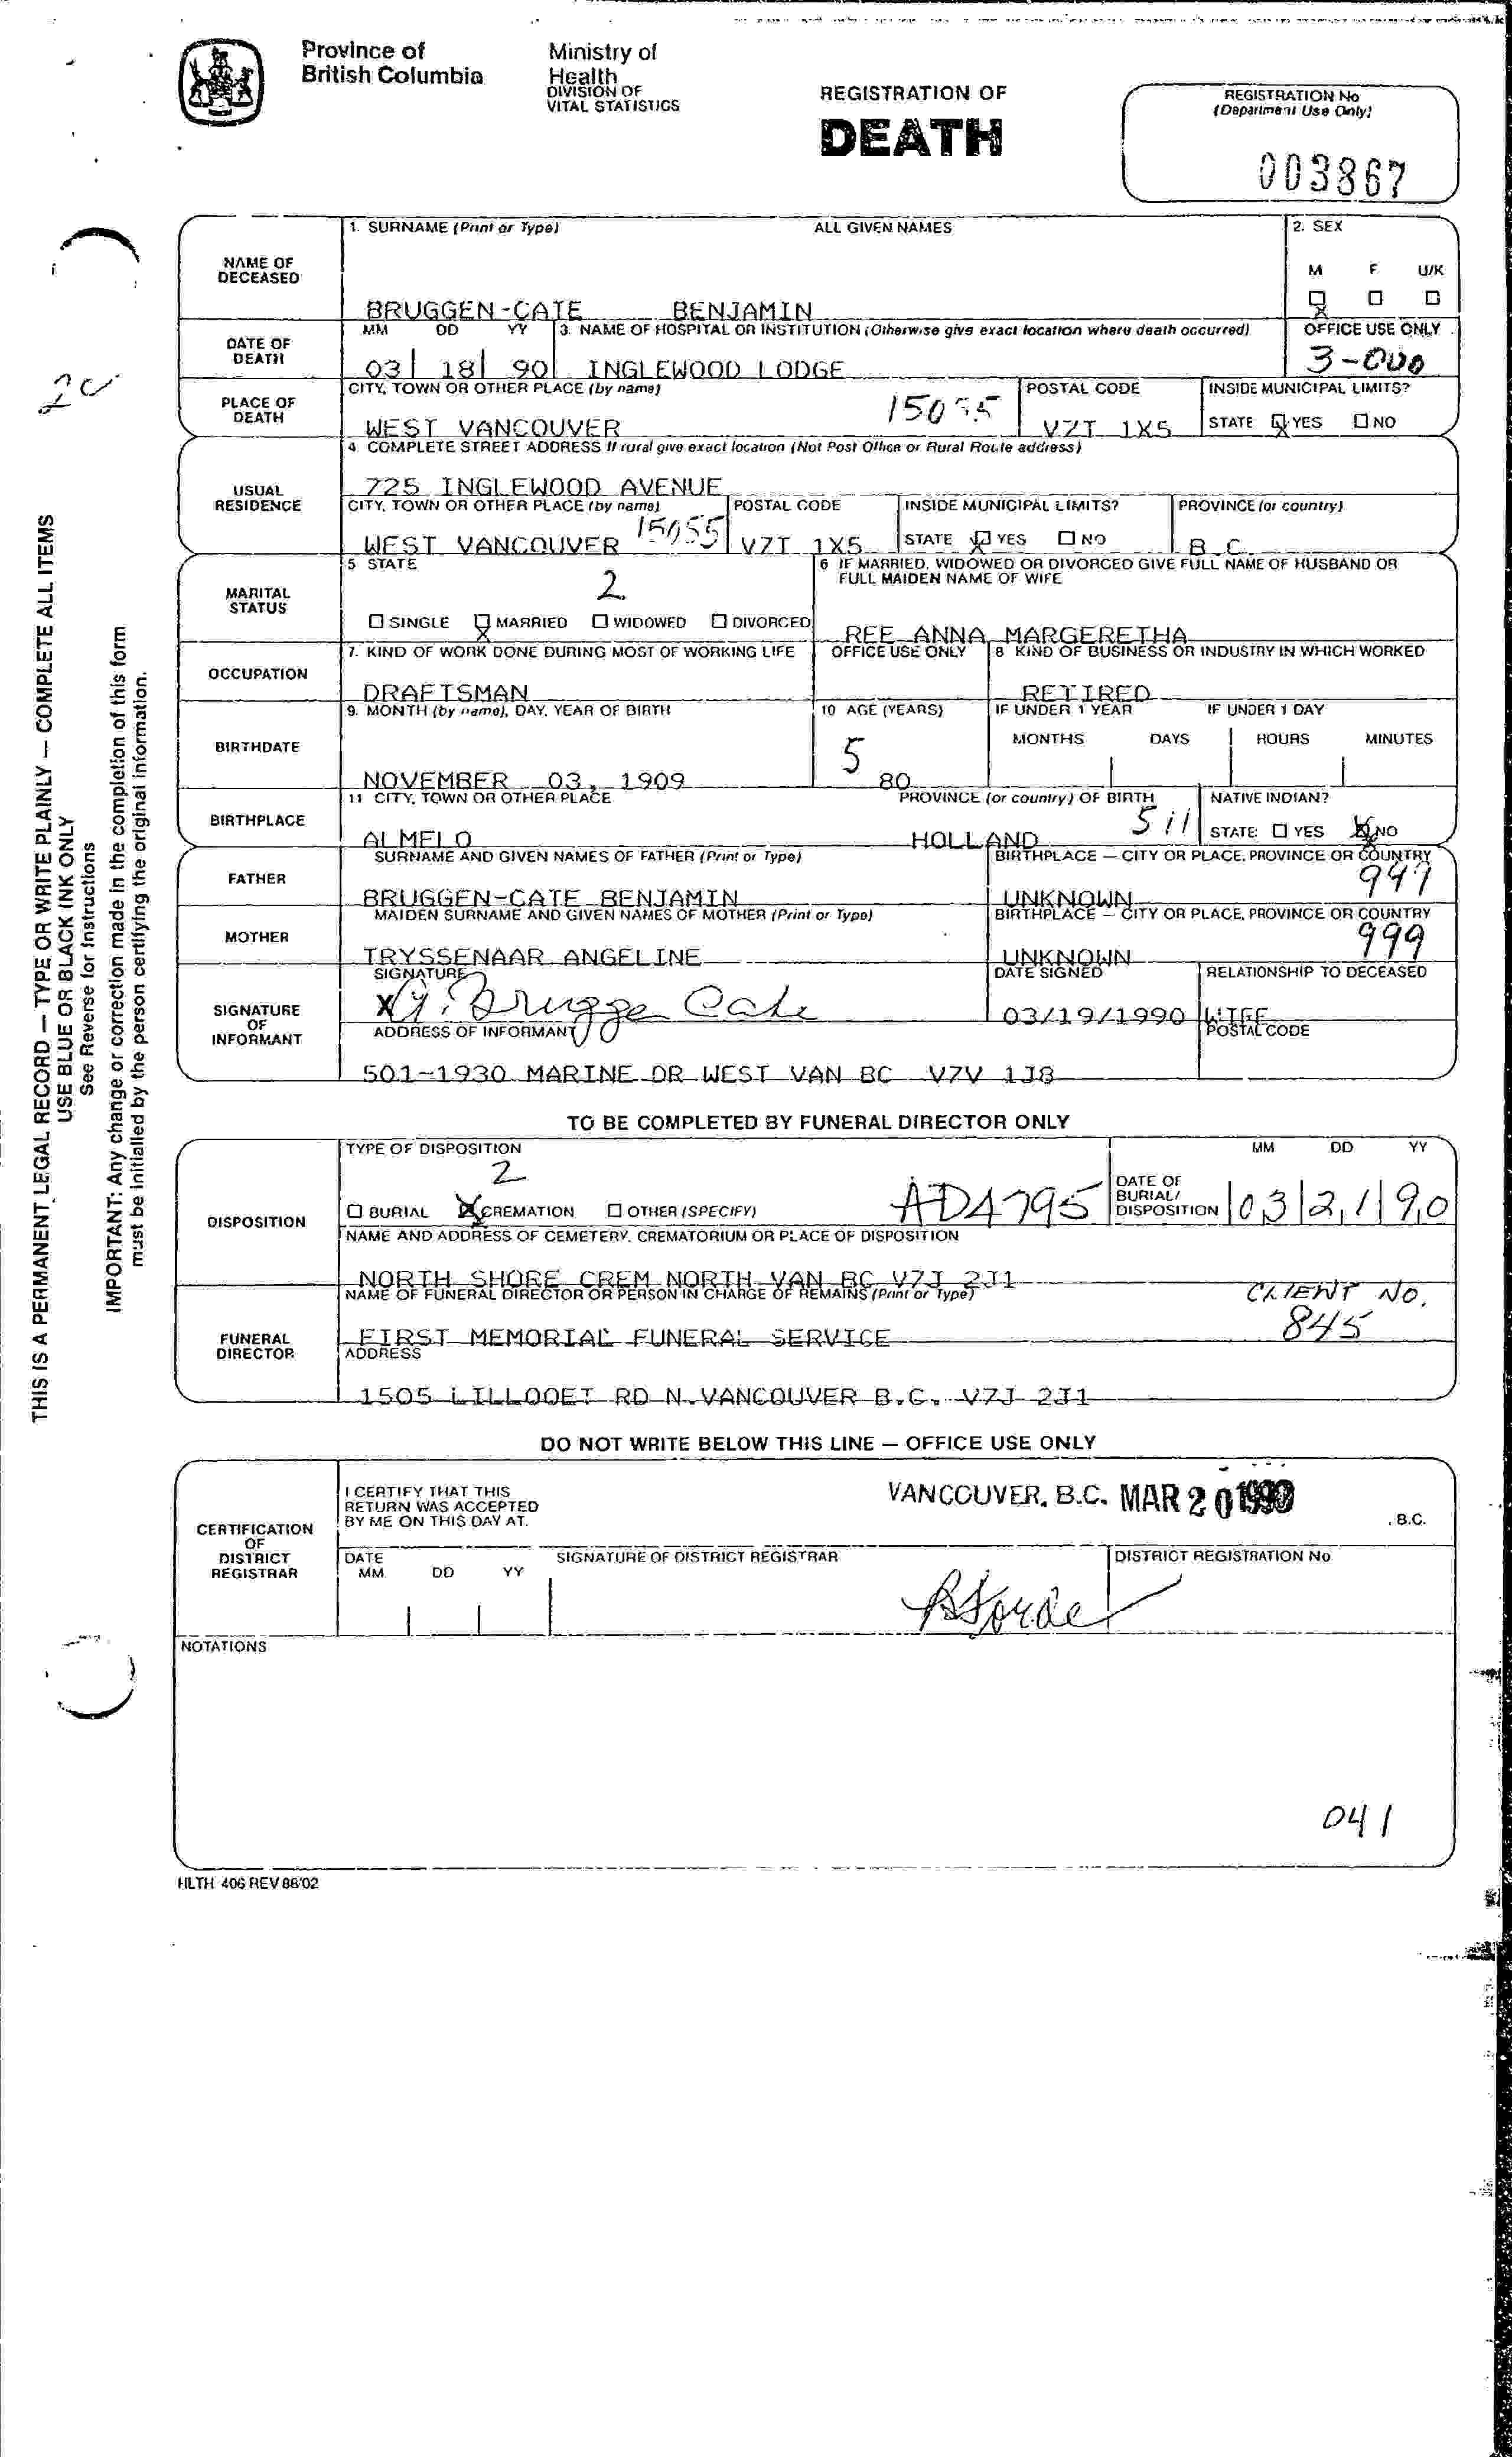 Province of
British Columbia
Ministry of
Health
DIVISION OF
VITAL STATISTICS
REGISTRATION OF
DEATH
REGISTRATION No
(Department Use Only)
003867
NAME OF
DECEASED
1. SURNAME (Print or Type)
ALL GIVEN NAMES
2. SEX
M F U/K
BRUGGEN-CATE BENJAMIN
DATE OF
DEATH
MM DD YY
3. NAME OF HOSPITAL OR INSTITUTION (Otherwise give exact location where death occurred)
OFFICE USE ONLY
03 18 90 INGLEWOOD LODGE
3-000
PLACE OF
DEATH
CITY, TOWN OR OTHER PLACE (by name)
POSTAL CODE
INSIDE MUNICIPAL LIMITS?
WEST VANCOUVER
V7T 1X5
STATE YES NO
USUAL
RESIDENCE
4. COMPLETE STREET ADDRESS If rural give exact location (Not Post Office or Rural Route address)
725 INGLEWOOD AVENUE
CITY, TOWN OR OTHER PLACE (by name)
POSTAL CODE
INSIDE MUNICIPAL LIMITS?
PROVINCE (or country)
WEST VANCOUVER 15055 V7T 1X5
STATE YES NO
B.C.
MARITAL
STATUS
5 STATE
2
SINGLE MARRIED WIDOWED DIVORCED
6 IF MARRIED, WIDOWED OR DIVORCED GIVE FULL NAME OF HUSBAND OR
FULL MAIDEN NAME OF WIFE
REE ANNA MARGERETHA
OCCUPATION
7. KIND OF WORK DONE DURING MOST OF WORKING LIFE
OFFICE USE ONLY
8 KIND OF BUSINESS OR INDUSTRY IN WHICH WORKED
DRAFTSMAN
RETIRED
BIRTHDATE
9. MONTH (by name), DAY, YEAR OF BIRTH
10 AGE (YEARS)
IF UNDER 1 YEAR
IF UNDER 1 DAY
MONTHS DAYS HOURS MINUTES
5
NOVEMBER 03, 1909
80
BIRTHPLACE
11 CITY, TOWN OR OTHER PLACE
PROVINCE (or country) OF BIRTH
NATIVE INDIAN?
ALMELO
HOLLAND
511
STATE: YES NO
FATHER
SURNAME AND GIVEN NAMES OF FATHER (Print or Type)
BIRTHPLACE — CITY OR PLACE, PROVINCE OR COUNTRY
BRUGGEN-CATE BENJAMIN
UNKNOWN
MOTHER
MAIDEN SURNAME AND GIVEN NAMES OF MOTHER (Print or Type)
BIRTHPLACE — CITY OR PLACE, PROVINCE OR COUNTRY
TRYSSENAAR ANGELINE
UNKNOWN
999
SIGNATURE
OF
INFORMANT
SIGNATURE
DATE SIGNED
RELATIONSHIP TO DECEASED
X Brugge Cate
03/19/1990
WIFE
ADDRESS OF INFORMANT
POSTAL CODE
501-1930 MARINE DR WEST VAN BC V7V 1J8
TO BE COMPLETED BY FUNERAL DIRECTOR ONLY
DISPOSITION
TYPE OF DISPOSITION
2
BURIAL CREMATION OTHER (SPECIFY)
AD4795
DATE OF
BURIAL/
DISPOSITION
MM DD YY
03 21 90
NAME AND ADDRESS OF CEMETERY, CREMATORIUM OR PLACE OF DISPOSITION
NORTH SHORE CREM NORTH VAN BC V7J 2J1
FUNERAL
DIRECTOR
NAME OF FUNERAL DIRECTOR OR PERSON IN CHARGE OF REMAINS (Print or Type)
CLIENT NO.
845
FIRST MEMORIAL FUNERAL SERVICE
ADDRESS
1505 LILLOOET RD N.VANCOUVER B.C. V7J 2J1
DO NOT WRITE BELOW THIS LINE — OFFICE USE ONLY
CERTIFICATION
OF
DISTRICT
REGISTRAR
I CERTIFY THAT THIS
RETURN WAS ACCEPTED
BY ME ON THIS DAY AT.
VANCOUVER, B.C. MAR 20 1990
, B.C.
DATE
MM DD YY
SIGNATURE OF DISTRICT REGISTRAR
DISTRICT REGISTRATION No
NOTATIONS
041
HLTH 406 REV 88/02
THIS IS A PERMANENT LEGAL RECORD — TYPE OR WRITE PLAINLY — COMPLETE ALL ITEMS
USE BLUE OR BLACK INK ONLY
See Reverse for Instructions
IMPORTANT: Any change or correction made in the completion of this form
must be initialled by the person certifying the original information.